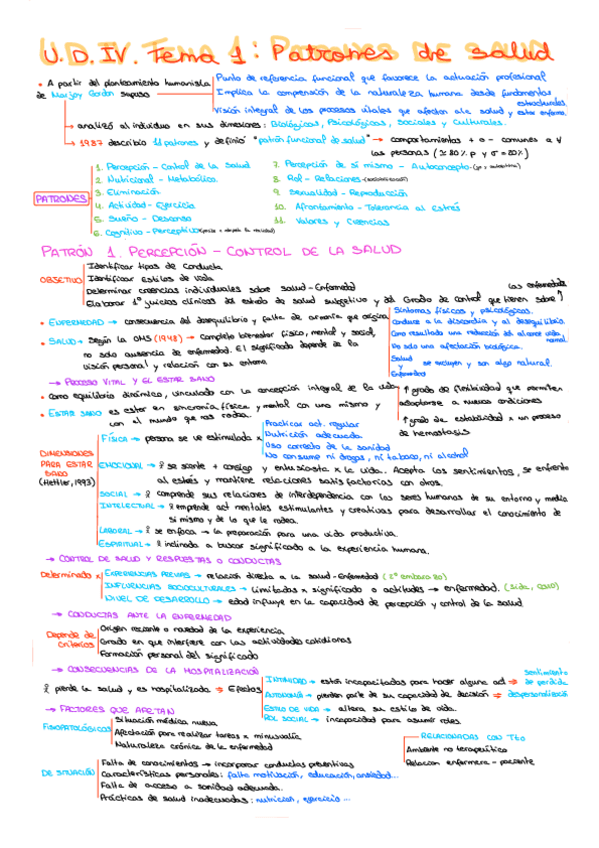 U.D. IV. Tema 1: Patrones de salud
• A partir del planteamiento humanista
de Marjory Gordon supuso
Punto de referencia funcional que favorece la actuación profesional
Implica la comprensión de la naturaleza humana desde fundamentos
estructurales
Visión integral de los procesos vitales que afectan a la salud y estar enfermo.
→ analizó al individuo en sus dimensiones: Biológicas, Psicológicas, Sociales y Culturales.
→ 1987 describió 11 patrones y definió "patrón funcional de salud" → comportamientos + o - comunes a ∀
las personas (≃ 80% p y σ = 20%)
PATRONES
1. Percepción - Control de la salud
2. Nutricional - Metabólico.
3. Eliminación
4. Actividad - Ejercicio
5. Sueño - Descanso
6. Cognitivo - Perceptivo
7. Percepción de sí mismo - Autoconcepto (yo y autoestima)
8. Rol - Relaciones
9. Sexualidad - Reproducción
10. Afrontamiento - Tolerancia al estrés
11. Valores y Creencias
PATRÓN 1. PERCEPCIÓN - CONTROL DE LA SALUD
OBJETIVO
Identificar tipos de conducta
Identificar estilos de vida
Determinar creencias individuales sobre salud - Enfermedad
Elaborar 1º juicios clínicos del estado de salud subjetivo y del Grado de control que tienen sobre
las enfermedades
• ENFERMEDAD → consecuencia del desequilibrio y falta de armonía que origina
Síntomas físicos y psicológicos.
Conduce a la discordia y al desequilibrio.
Como resultado una reducción del alcance vida
normal
No solo una afectación biológica.
Salud
y se excluyen y son algo natural.
Enfermedad
• SALUD → Según la OMS (1948) → completo bienestar físico, mental y social,
no solo ausencia de enfermedad. El significado depende de la
visión personal y relación con su entorno
→ PROCESO VITAL Y EL ESTAR SANO
• como equilibrio dinámico, vinculado con la concepción integral de la vida
↑ grado de flexibilidad que permiten
adaptarse a nuevas condiciones
↑ grado de estabilidad x un proceso
de hemostasis
• ESTAR SANO es estar en sincronía física y mental con uno mismo y
con el mundo que nos rodea.
DIMENSIONES
PARA ESTAR
SANO
(Hettler, 1993)
FÍSICA → persona se ve estimulada x
Practicar act. regular
Nutrición adecuada
Uso correcto de la sanidad
No consume ni drogas, ni tabaco, ni alcohol
EMOCIONAL → se siente + consigo y entusiasta x la vida. Acepta los sentimientos, se enfrenta
al estrés y mantiene relaciones satisfactorias con otros.
SOCIAL → comprende sus relaciones de interdependencia con los seres humanos de su entorno y medio
INTELECTUAL → emprende act mentales estimulantes y creativas para desarrollar el conocimiento de
sí mismo y de lo que le rodea.
LABORAL → se enfoca → la preparación para una vida productiva.
ESPIRITUAL → inclinado a buscar significado a la experiencia humana.
→ CONTROL DE SALUD Y RESPUESTAS O CONDUCTAS
Determinado x
EXPERIENCIAS PREVIAS → relación directa a la salud - Enfermedad (2º embarazo)
INFLUENCIAS SOCIOCULTURALES → Limitadas x significado o actitudes → enfermedad.
NIVEL DE DESARROLLO → edad influye en la capacidad de percepción y control de la salud
→ CONDUCTAS ANTE LA ENFERMEDAD
Depende de
criterios
Origen reciente o novedad de la experiencia
Grado en que interfiere con las actividades cotidianas
Formación personal del significado
→ CONSECUENCIAS DE LA HOSPITALIZACIÓN
pierde la salud y es hospitalizada ⇒ Efectos
INTIMIDAD → están incapacitadas para hacer alguna act ⇒
sentimiento
de perdida
AUTONOMÍA → pierden parte de su capacidad de decisión ⇒ despersonalizació
ESTILO DE VIDA → altera su estilo de vida.
ROL SOCIAL → incapacidad para asumir roles.
→ FACTORES QUE AFECTAN
FISIOPATOLÓGICOS
Situación médica nueva
Afectación para realizar tareas x minusvalía
Naturaleza crónica de la enfermedad
RELACIONADAS CON Tto
Ambiente no terapeútico
Relación enfermera - paciente
DE SITUACIÓN
Falta de conocimientos → incorporar conductas preventivas
Características personales: falta motivación, educación, ansiedad...
Falta de acceso a sanidad adecuada.
Prácticas de salud inadecuadas: nutrición, ejercicio...